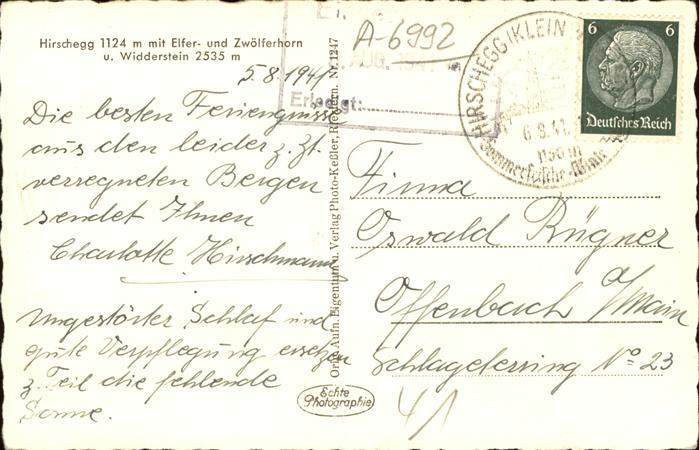 Hirschegg 1124 m mit Elfer- und Zwölferhorn
u. Widderstein 2535 m
5.8.1941
Die besten Feriengrüsse
aus den leider z. Zt.
verregneten Bergen
sendet Ihnen
Charlotte Hirschmann
Ungestörter Schlaf und
gute Verpflegung ersetzen
z. Teil die fehlende
Sonne.
Orig. Aufn. Eigentum u. Verlag Photo-Keßler, Riezlern. Nr. 1247
Echte
Photographie
A-6992
AUG.
Erledigt:
HIRSCHEGG (KLEIN
6.8.41.
1150 m
Sommerfrische
6 6
Deutsches Reich
Firma
Oswald Rügner
Offenbach a/Main
Schlageterring No 23
4/1